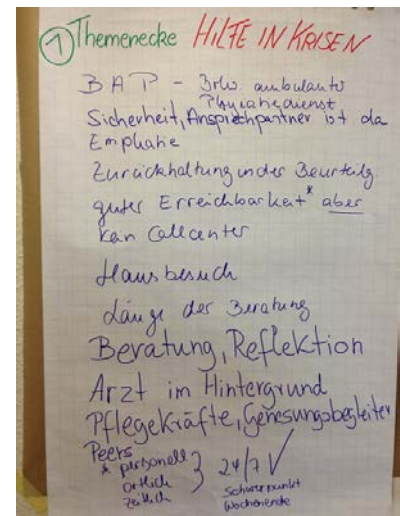 ① Themenecke HILFE IN KRISEN
BAP - ambulante
Sicherheit, Ansprechpartner ist da
Emphatie
Zurückhaltung in der Beurteilg.
guter Erreichbarkeit* aber
kein Callcenter
Hausbesuch
Länge der Beratung
Beratung, Reflektion
Arzt im Hintergrund
Pflegekräfte, Genesungsbegleiter
Peers
* personell } 24/7 ✓
örtlich
zeitlich
Schwerpunkt
Wochenende